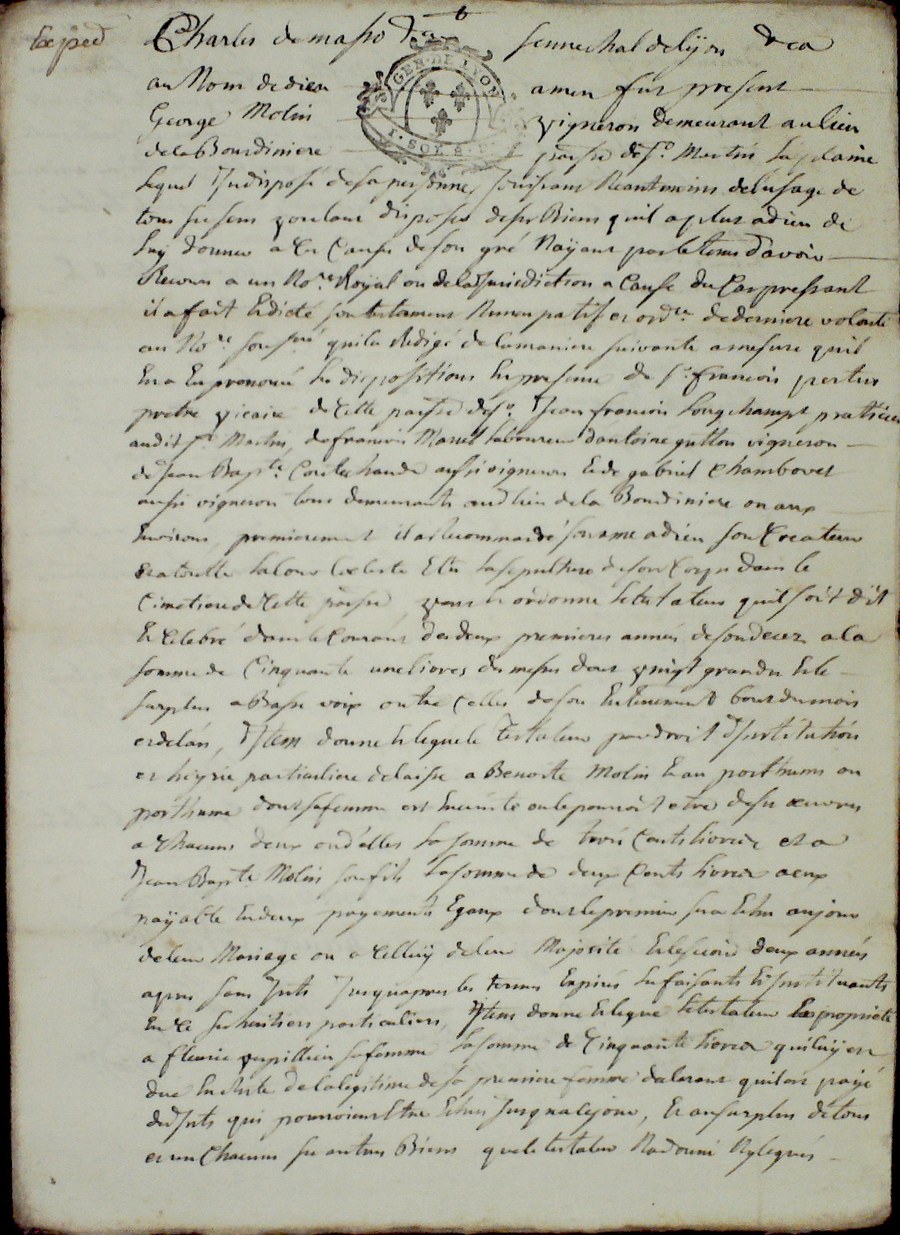 Exped
Charles de masso &ca sennechal de lyon &ca
GEN · DE LYON
au Nom de dieu amen fut present
George Molin vigneron demeurant au lieu
1 · SOL 8 · D
de la Bourdiniere parsse de st. Martin la plaine
lequel Indisposé de sa personne, Jouissant Neantmoins de l'usage de
tous ses sens voulant disposer de ses Biens qu'il a plut a dieu de
luy donner a Ces Causes de son gré Nayant pas le tems d'avoir
Recours a un No.re Royal ou de la Jurisdiction a Cause du Cas pressant
il a fait Et dicté son testament Nuncupatif et ord.re de derniere volonté
au No.re soussné qui la Redigé de la maniere suivante a mesure qu'il
En a Eu prononcé les dispositions En presence de sr. francois pertus
pretre vicaire de Cette parsse de sr. Jean francois Longchampt praticien
audit st. Martin, de francois Marcel laboureur d'antoine gutton vigneron
de Jean Bapte. aussi vigneron Et de gabriel Chambovet
aussi vigneron tous demeurants audit lieu de la Bourdiniere ou aux
Environs, premierement il a Recommandé son ame a dieu son Createur
Et a toutte la Cour Celeste Elu la sepulture de son Corps dans le
Cimetiere de Cette parsse, veut et ordonne le testateur qu'il soit dit
Et Celebré dans le Courant des deux premieres années de son decez a la
somme de Cinquante une livres des messes dont vingt grandes Et le
surplus a Basse voix outre Celles de son Enterrement bout du mois
et de l'an, Item donne Et legue le Testateur par droit d'Institution
et heyrie particuliere delaisse a Benoite Molin Et au posthume ou
posthume dont sa femme est Enceinte ou le pourroit etre de ses œuvres
a Chacuns d'eux ou d'elles la somme de trois Cents livres et a
Jean Bapte Molin son fils la somme de deux Cents livres a eux
payable En deux payements Egaux dont le premier sera Echu au jour
de leur Mariage ou a Celluy de leur Majorité Et le second deux années
apres sans Ints Jusqu'apres les termes Expirés les faisants Et Instituants
En Ce ses heritiers particuliers, Item donne Et legue le testateur En proprieté
a fleurie vupillier sa femme la somme de Cinquante livres qu'il luy est
due Ensuite de la legitime de sa premiere femme dalerant qu'il ont payé
des Ints qui pourroient Etre Echus Jusqu'a Ce jour, Et au surplus de tous
et un Chacuns ses autres Biens que le testateur Na donné Ny legués